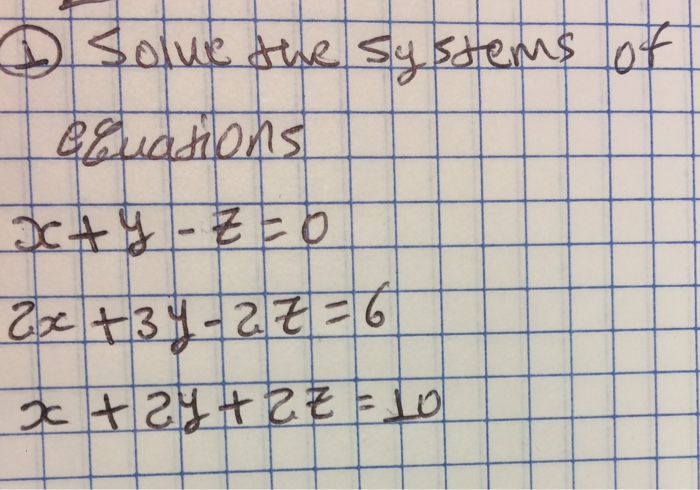 ① Solve the systems of
equations
x + y - z = 0
2x + 3y - 2z = 6
x + 2y + 2z = 10